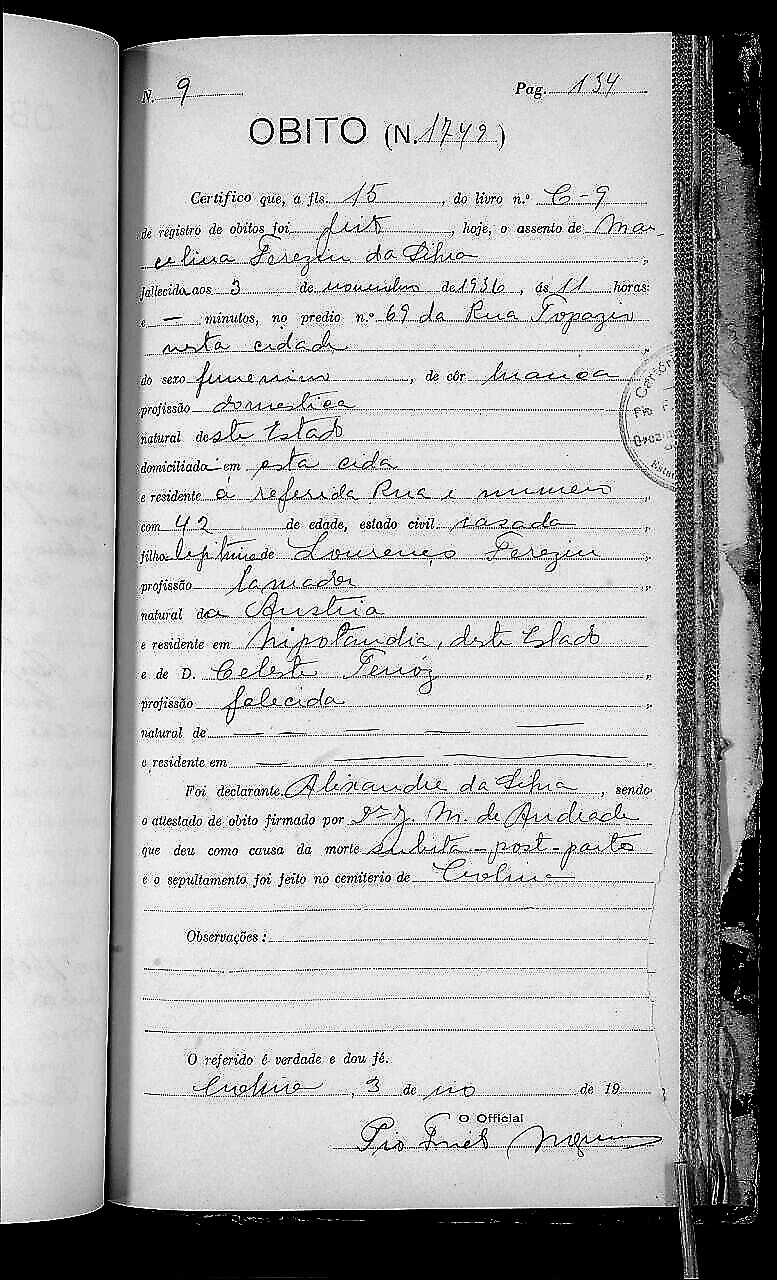 N. 9 Pag. 134
OBITO (N. 1749)
Certifico que, a fls. 15, do livro n.º C-9
de registro de obitos foi feito, hoje, o assento de Mar-
celina Ferezin da Silva,
fallecida aos 3 de novembro de 1936, ás 11 horas:
e — minutos, no predio n.º 69 da Rua Topazio
nesta cidade,
do sexo femenino, de côr branca
profissão domestica
natural deste Estado
domiciliada em esta cida
e residente á referida Rua e numero,
com 42 de edade, estado civil casada,
filha legitima de Lourenço Ferezin,
profissão lavrador,
natural da Austria
e residente em deste Estado
e de D. Celeste,
profissão falecida,
natural de — — — — —
e residente em — — —,
Foi declarante Alexandre da Silva, sendo
o attestado de obito firmado por Dr. J. M. de Andrade
que deu como causa da morte subita-post-parto
e o sepultamento foi feito no cemiterio de
Observações:
O referido é verdade e dou fé.
, 3 de no de 19
O Official
Pio
Cartorio
Pio
Esta